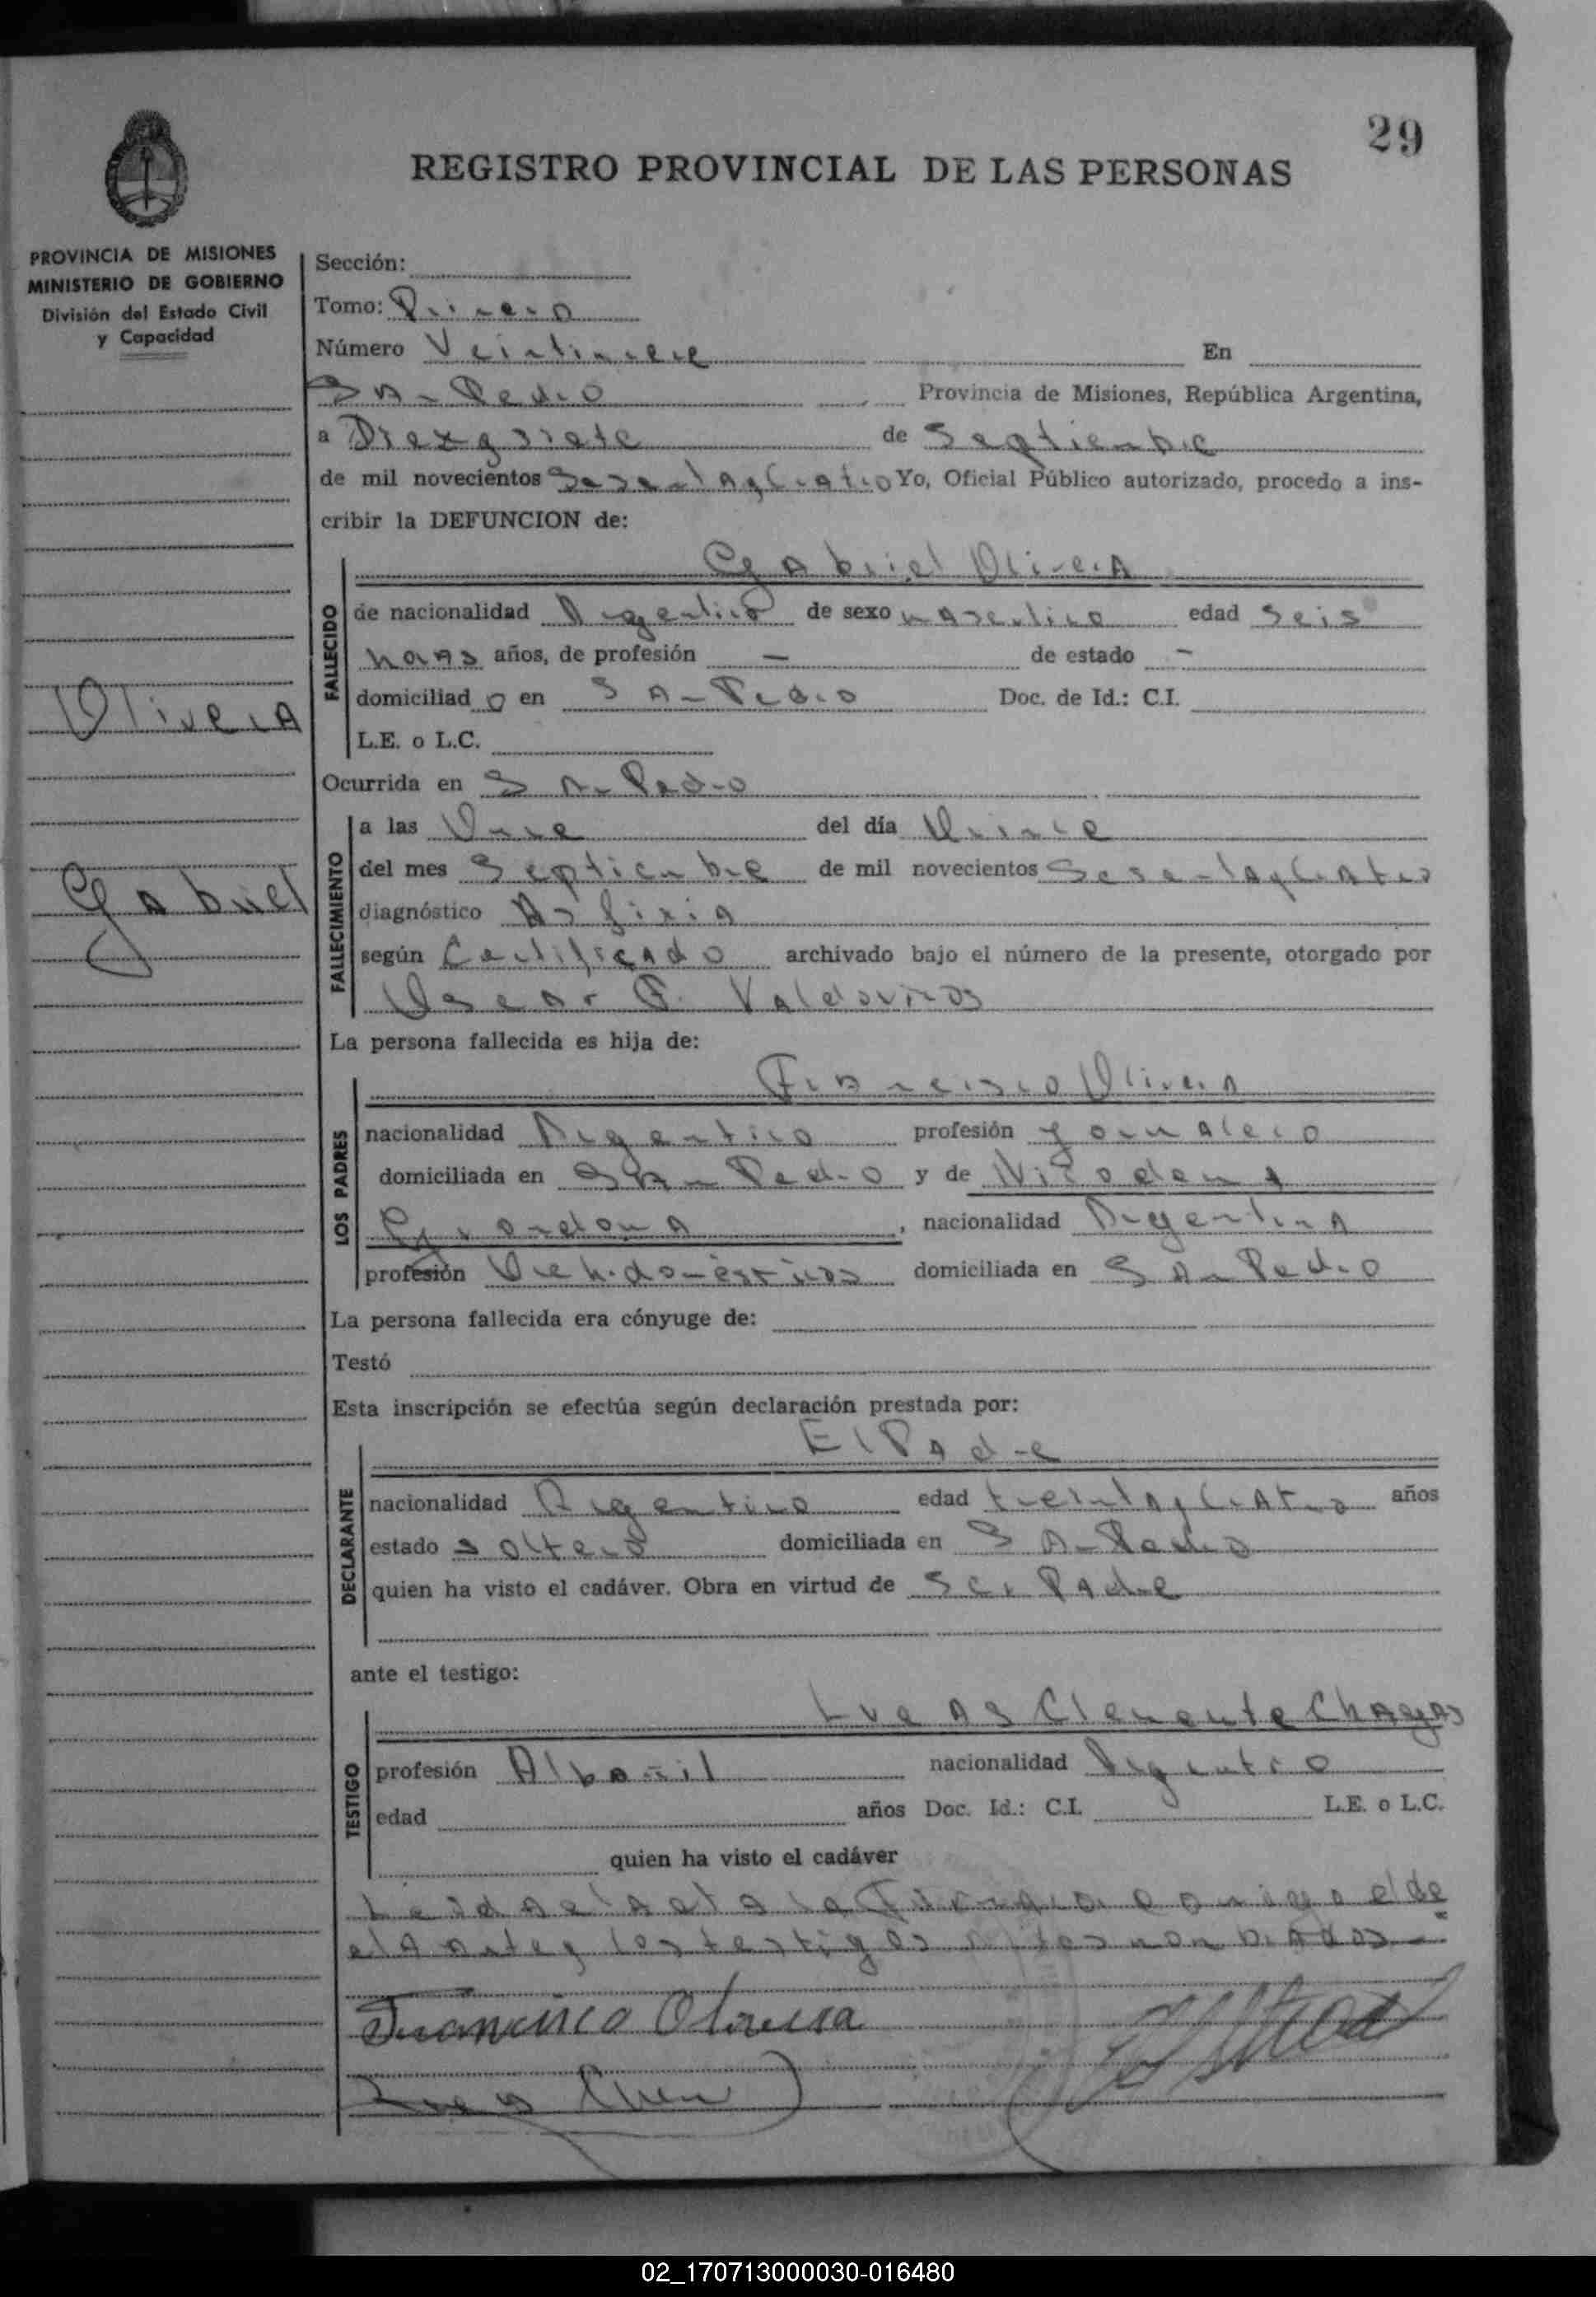 29
REGISTRO PROVINCIAL DE LAS PERSONAS
PROVINCIA DE MISIONES
MINISTERIO DE GOBIERNO
División del Estado Civil
y Capacidad
Sección:
Tomo: Primero
Número Veintinueve En
San Pedro Provincia de Misiones, República Argentina,
a Diez y siete de Septiembre
de mil novecientos Sesenta y Cuatro Yo, Oficial Público autorizado, procedo a ins-
cribir la DEFUNCION de:
Gabriel Olivera
FALLECIDO
de nacionalidad Argentino de sexo masculino edad Seis
horas años, de profesión — de estado —
domiciliad o en San Pedro Doc. de Id.: C.I.
L.E. o L.C.
Olivera
Gabriel
Ocurrida en San Pedro
FALLECIMIENTO
a las Once del día Quince
del mes Septiembre de mil novecientos Sesenta y Cuatro
diagnóstico Asfixia
según Certificado archivado bajo el número de la presente, otorgado por
Oscar F. Valdovinos
La persona fallecida es hija de:
Francisco Olivera
LOS PADRES
nacionalidad Argentino profesión Jornalero
domiciliada en San Pedro y de Nicodema
, nacionalidad Argentina
profesión Queh. domésticos domiciliada en San Pedro
La persona fallecida era cónyuge de:
Testó
Esta inscripción se efectúa según declaración prestada por:
El Padre
DECLARANTE
nacionalidad Argentino edad treinta y Cuatro años
estado soltero domiciliada en San Pedro
quien ha visto el cadáver. Obra en virtud de Ser Padre
ante el testigo:
Lucas Clemente Chagas
TESTIGO
profesión Albañil nacionalidad Argentino
edad años Doc. Id.: C.I. L.E. o L.C.
quien ha visto el cadáver
Leida el acta la conmigo el de
clarante y los testigos nombrados.—
Francisco Olivera
Lucas
02_170713000030-016480